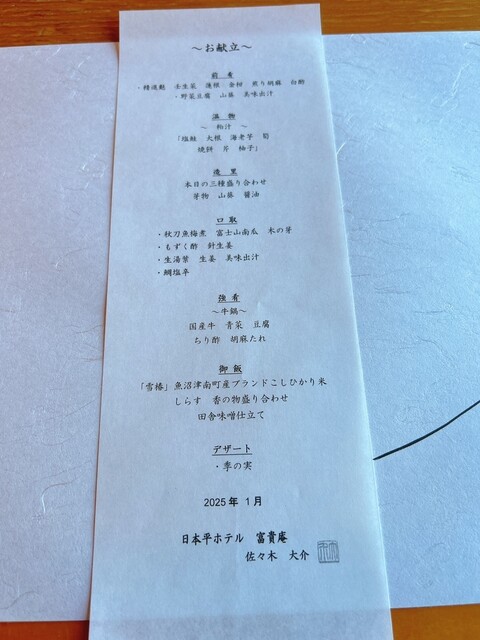 ～お献立～
前肴
・精進麩　壬生菜　蓮根　金柑　煎り胡麻　白酢
・野菜豆腐　山葵　美味出汁
温物
～　粕汁　～
「塩鮭　大根　海老芋　筍
焼餅　芹　柚子」
造里
本日の三種盛り合わせ
芽物　山葵　醤油
口取
・秋刀魚梅煮　富士山南瓜　木の芽
・もずく酢　針生姜
・生湯葉　生姜　美味出汁
・鯛塩辛
強肴
～牛鍋～
国産牛　青菜　豆腐
ちり酢　胡麻たれ
御飯
「雪椿」魚沼津南町産ブランドこしひかり米
しらす　香の物盛り合わせ
田舎味噌仕立て
デザート
・季の実
2025年 1月
日本平ホテル　富貴庵
佐々木　大介